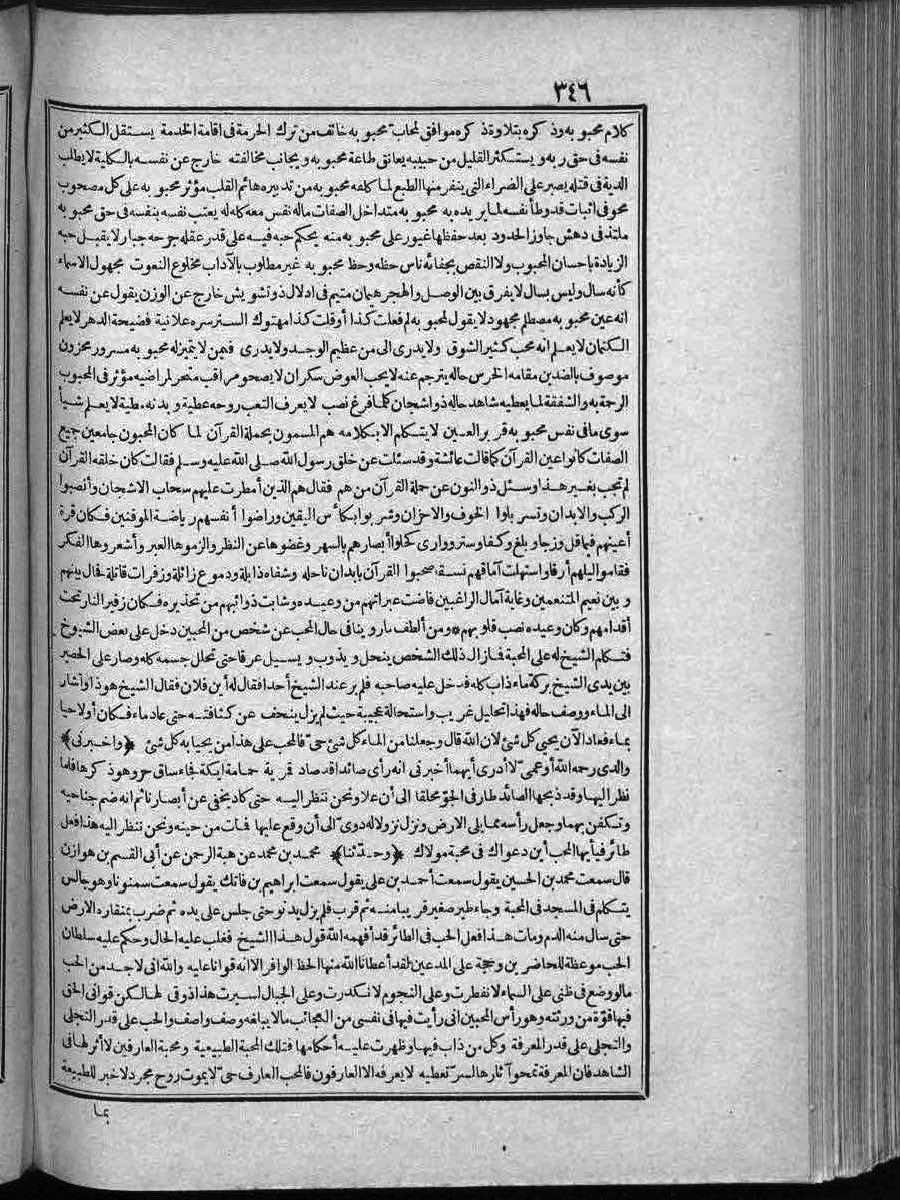 ٣٤٦
كلام محبوبه وذكره بتلاوة ذكره موافق لمحاب محبوبه خائف من ترك الحرمة فى اقامة الخدمة يستقل الكثير من
نفسه فى حق ربه ويستكثر القليل من حبيبه يعانق طاعة محبوبه ويجانب مخالفته خارج عن نفسه بالكلية لا يطلب
الدية فى قتله يصبر على الضراء التى ينفر منها الطبع لما كلفه محبوبه من تدبيره هائم القلب مؤثر محبوبه على كل مصحوب
محو فى اثبات قد وطأ نفسه لما يريده به محبوبه متداخل الصفات ماله نفس معه كله له يعتب نفسه بنفسه فى حق محبوبه
ملتذ فى دهش جاوز الحدود بعد حفظها غيور على محبوبه منه يحكم حبه فيه على قدر عقله جرحه جبار لا يقبل حبه
الزيادة باحسان المحبوب ولا النقص بجفائه ناس حظه وحظ محبوبه غير مطلوب بالآداب مخلوع النعوت مجهول الاسماء
كأنه سال وليس بسال لا يفرق بين الوصل والهجر هيمان متيم فى ادلال ذو تشويش خارج عن الوزن يقول عن نفسه
انه عين محبوبه مصطلم مجهود لا يقول لمحبوبه لم فعلت كذا أو قلت كذا مهتوك الستر سره علانية فضيحة الدهر لا يعلم
الكتمان لا يعلم انه محب كثير الشوق ولا يدرى الى من عظيم الوجد ولا يدرى فيمن لا يتميز له محبوبه مسرور محزون
موصوف بالضدين مقامه الخرس حاله يترجم عنه لا يحب لعوض سكران لا يصحو مراقب متحر لمراضيه مؤثر فى المحبوب
الرحة به والشفقة لما يعطيه شاهد حاله ذو اشجان كلما فرغ نصب لا يعرف التعب روحه عطية وبدنه مطية لا يعلم شيأ
سوى ما فى نفس محبوبه قرير العين لا يتكلم الا بكلامه هم المسمون بحملة القرآن لما كان المحبون جامعين جميع
الصفات كانوا عين القرآن كما قالت عائشة وقد سئلت عن خلق رسول الله صلى الله عليه وسلم فقالت كان خلقه القرآن
لم تجب بغير هذا وسئل ذو النون عن حملة القرآن من هم فقال هم الذين أمطرت عليهم سحاب الاشجان وأنصبوا
الركب والابدان وتسربلوا الخوف والاحزان وشربوا بكأس اليقين وراضوا أنفسهم رياضة الموقنين فكان قرة
أعينهم فيما قل وزجا وبلغ وكفا وستر ووارى كحلوا أبصارهم بالسهر وغضوها عن النظر وألزموها العبر وأشعروها الفكر
فقاموا ليلهم أرقا واستهلت آماقهم نسقا صحبوا القرآن بابدان ناحله وشفاه ذابلة ودموع زائلة وزفرات قاتلة فحال بينهم
وبين نعيم المتنعمين وغاية آمال الراغبين فاضت عبراتهم من وعيده وشابت ذوائبهم من تحذيره فكان زفير النار تحت
أقدامهم وكان وعيده نصب قلوبهم * ومن ألطف ما روينا فى حال المحب عن شخص من المحبين دخل على بعض الشيوخ
فتكلم الشيخ له على المحبة فما زال ذلك الشخص ينحل ويذوب ويسيل عرقا حتى تحلل جسمه كله وصار على الحصير
بين يدى الشيخ بركة ماء ذاب كله فدخل عليه صاحبه فلم ير عند الشيخ أحدا فقال له أين فلان فقال الشيخ هو ذا وأشار
الى الماء ووصف حاله فهذا تحليل غريب واستحالة عجيبة حيث لم يزل ينحف عن كثافته حتى عاد ماء فكان أولا حيا
بماء فعاد الآن يحيى كل شئ لان الله قال وجعلنا من الماء كل شئ حىّ فالمحب على هذا من يحيا به كل شئ ﴿واخبرنى﴾
والدى رحمه الله أو عمى لا أدرى أيهما أخبرنى انه رأى صائدا قد صاد قرية حمامة ايكة فجاء ساق حر وهو ذكرها فلما
نظر اليها وقد ذبحها الصائد طار فى الجوّ محلقا الى أن علا ونحن ننظر اليه حتى كاد يخفى عن أبصارنا ثم انه ضم جناحيه
وتكفن بهما وجعل رأسه مما يلى الارض ونزل نزولا له دوىّ الى أن وقع عليها فمات من حينه ونحن ننظر اليه هذا فعل
طائر فيا أيها المحب أين دعواك فى محبة مولاك ﴿وحدّثنا﴾ محمد بن محمد عن هبة الرحمن عن أبى القسم بن هوازن
قال سمعت محمد بن الحسين يقول سمعت أحمد بن على يقول سمعت ابراهيم بن فاتك يقول سمعت سمنونا وهو جالس
يتكلم فى المسجد فى المحبة وجاء طير صغير قريبا منه ثم قرب فلم يزل يدنو حتى جلس على يده ثم ضرب بمنقاره الارض
حتى سال منه الدم ومات هذا فعل الحب فى الطائر قد أفهمه الله قول هذا الشيخ فغلب عليه الحال وحكم عليه سلطان
الحب موعظة للحاضرين وحجة على المدعين لقد أعطانا الله منها الحظ الوافر الا انه قوانا عليه والله انى لاجد من الحب
ما لو وضع فى ظنى على السماء لانفطرت وعلى النجوم لانكدرت وعلى الجبال لسيرت هذا ذوقى لها لكن قوانى الحق
فيها قوّة من ورثته وهو رأس المحبين انى رأيت فيها فى نفسى من العجائب ما لا يبلغه وصف واصف والحب على قدر التجلى
والتجلى على قدر المعرفة وكل من ذاب فيها وظهرت عليه أحكامها فتلك المحبة الطبيعية ومحبة العارفين لا أثر لها فى
الشاهد فان المعرفة تمحو آثارها لسرّ تعطيه لا يعرفه الا العارفون فالمحب العارف حىّ لا يموت روح مجرد لا خبر للطبيعة
بما